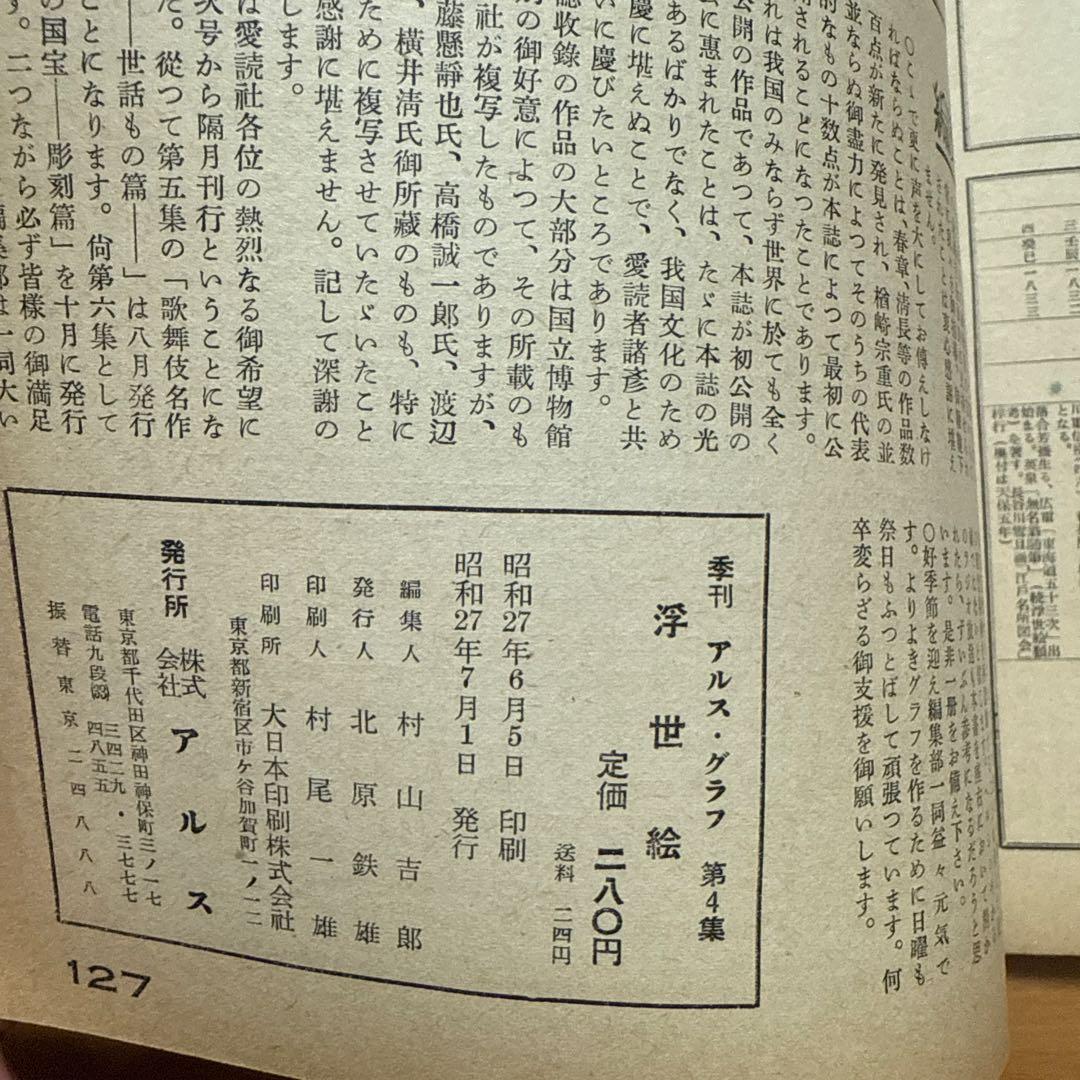 〇こゝで更に声を大にしてお傳えしなけ
ればならぬことは、春章、清長等の作品数
百点が新たに発見され、楢崎宗重氏の並
並ならぬ御盡力によつてそのうちの代表
的なもの十数点が本誌によつて最初に公
されることになつたことであります。
れは我国のみならず世界に於ても全く
公開の作品であつて、本誌が初公開の
に惠まれたことは、たゞに本誌の光
あるばかりでなく、我国文化のため
慶に堪えぬことで、愛読者諸彦と共
いに慶びたいところであります。
誌収録の作品の大部分は国立博物館
別の御好意によつて、その所載のも
社が複写したものでありますが、
藤懸靜也氏、高橋誠一郎氏、渡辺
、横井淸氏御所蔵のものも、特に
ために複写させていたゞいたこと
感謝に堪えません。記して深謝の
します。
は愛読社各位の熱烈なる御希望に
次号から隔月刊行ということにな
た。從つて第五集の「歌舞伎名作
――世話もの篇――」は八月発行
とになります。尙第六集として
の国宝――彫刻篇」を十月に発行
す。二つながら必ず皆様の御満足
います。是非一册をお備え下さい。
〇好季節を迎え編集部一同益々元気で
す。よりよきグラフを作るために日曜も
祭日もふつとばして頑張つています。何
卒変らざる御支援を御願いします。
季刊 アルス・グラフ 第4集
浮世絵
定価 二八〇円
送料 二四円
昭和27年6月5日 印刷
昭和27年7月1日 発行
編集人 村山吉郎
発行人 北原鉄雄
印刷人 村尾一雄
印刷所 大日本印刷株式会社
東京都新宿区市ケ谷加賀町一ノ一二
発行所 株式会社 アルス
東京都千代田区神田神保町三ノ一七
電話九段(33) 三四二九・三七七七
四八五五
振替東京二四八八八
127
三 壬辰 一八三二
四 癸巳 一八三三
となる。
落合芳幾生る、広重「東海道五十三次」出